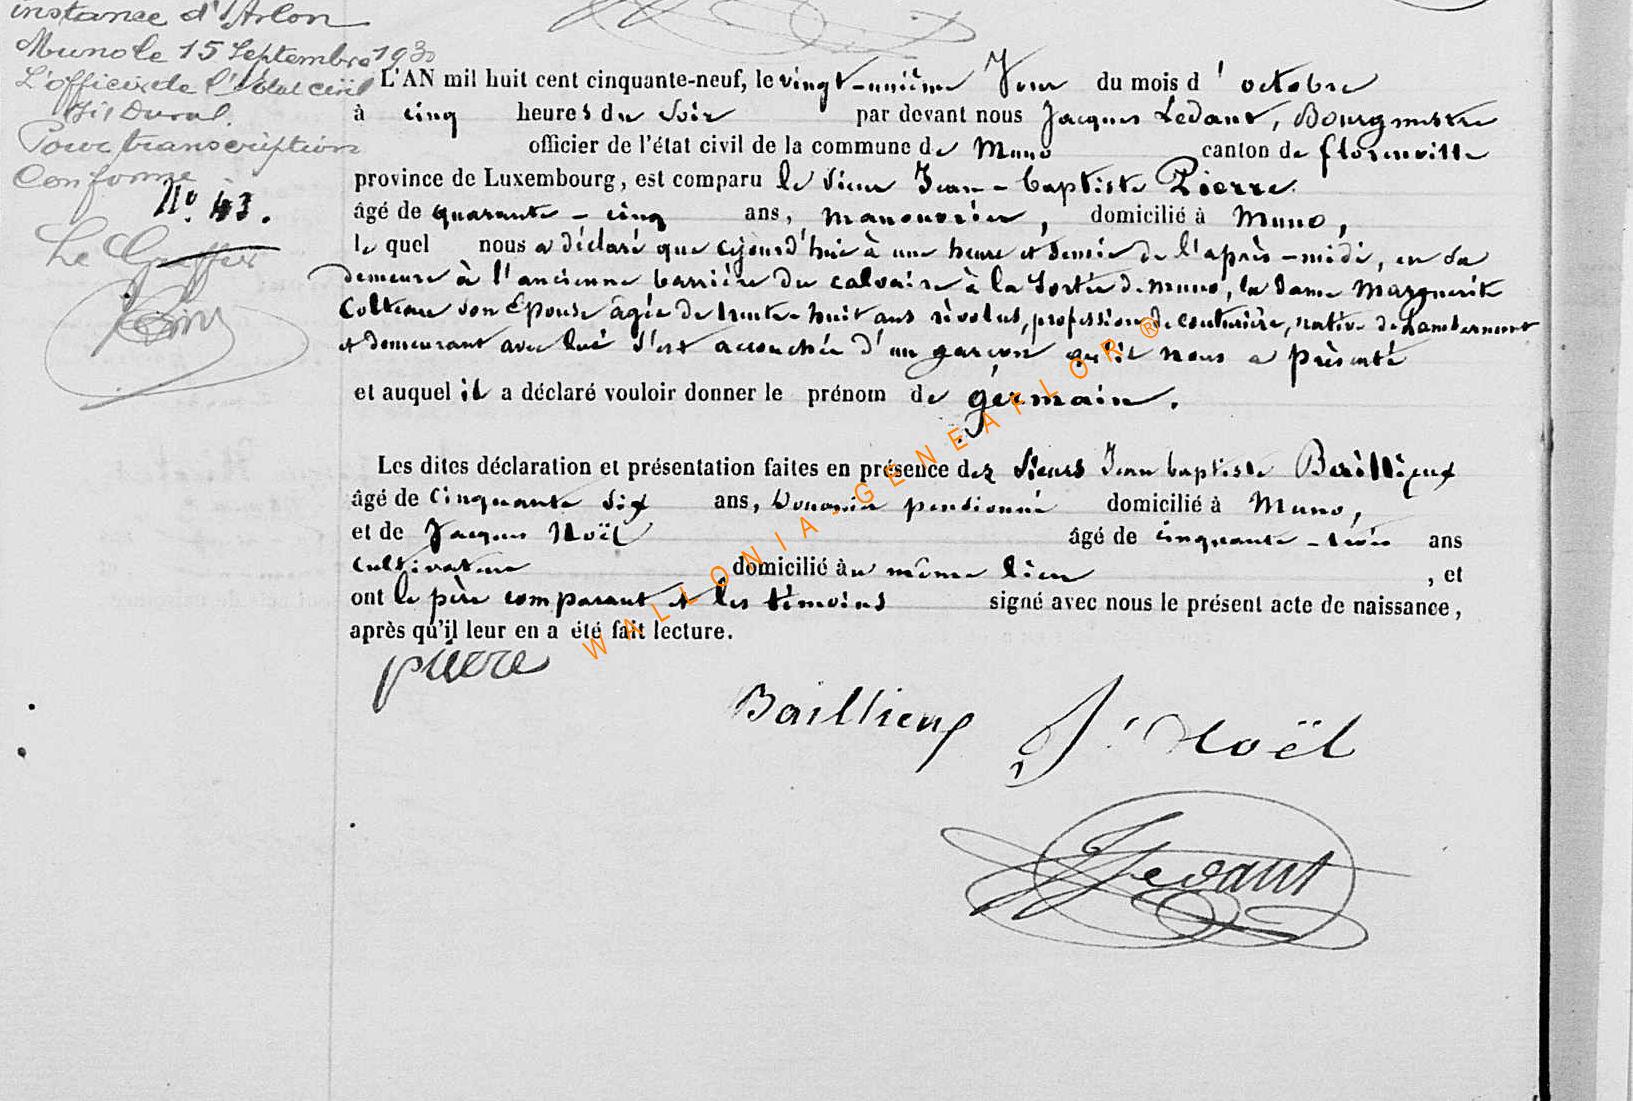 instance d'Arlon
Muno le 15 Septembre 193
L'officier de l'état civil
Duval.
Pour transcription
Conforme
N° 43.
Le Greffier
L'AN mil huit cent cinquante-neuf, le vingt-unième Jour du mois d' octobre
à cinq heures du Soir par devant nous Jacques Ledant, Bourgmestre
officier de l'état civil de la commune de Muno canton de florenville
province de Luxembourg, est comparu le Sieur Jean-baptiste Pierre.
âgé de quarante-cinq ans, manouvrier, domicilié à Muno,
le quel nous a déclaré que cejourd'hui à une heure et demie de l'après-midi, en sa
demeure à l'ancienne barrière du calvaire à la Sortie de muno, la dame Marguerite
Colteau son Epouse âgée de trente-huit ans révolus, profession de couturière, native de Lambermont
et demeurant avec lui s'est accouchée d'un garçon qu'il nous a présenté
et auquel il a déclaré vouloir donner le prénom de germain.
Les dites déclaration et présentation faites en présence des Sieurs Jean baptiste Baillieux
âgé de Cinquante Six ans, Douanier pensionné domicilié à Muno,
et de Jacques Noël âgé de cinquante-trois ans
Cultivateur domicilié au même lieu , et
ont le père comparant et les témoins signé avec nous le présent acte de naissance,
après qu'il leur en a été fait lecture.
pierre
Baillieux J. Noël
JLedant
WALLONIA-GENEAFLOR®